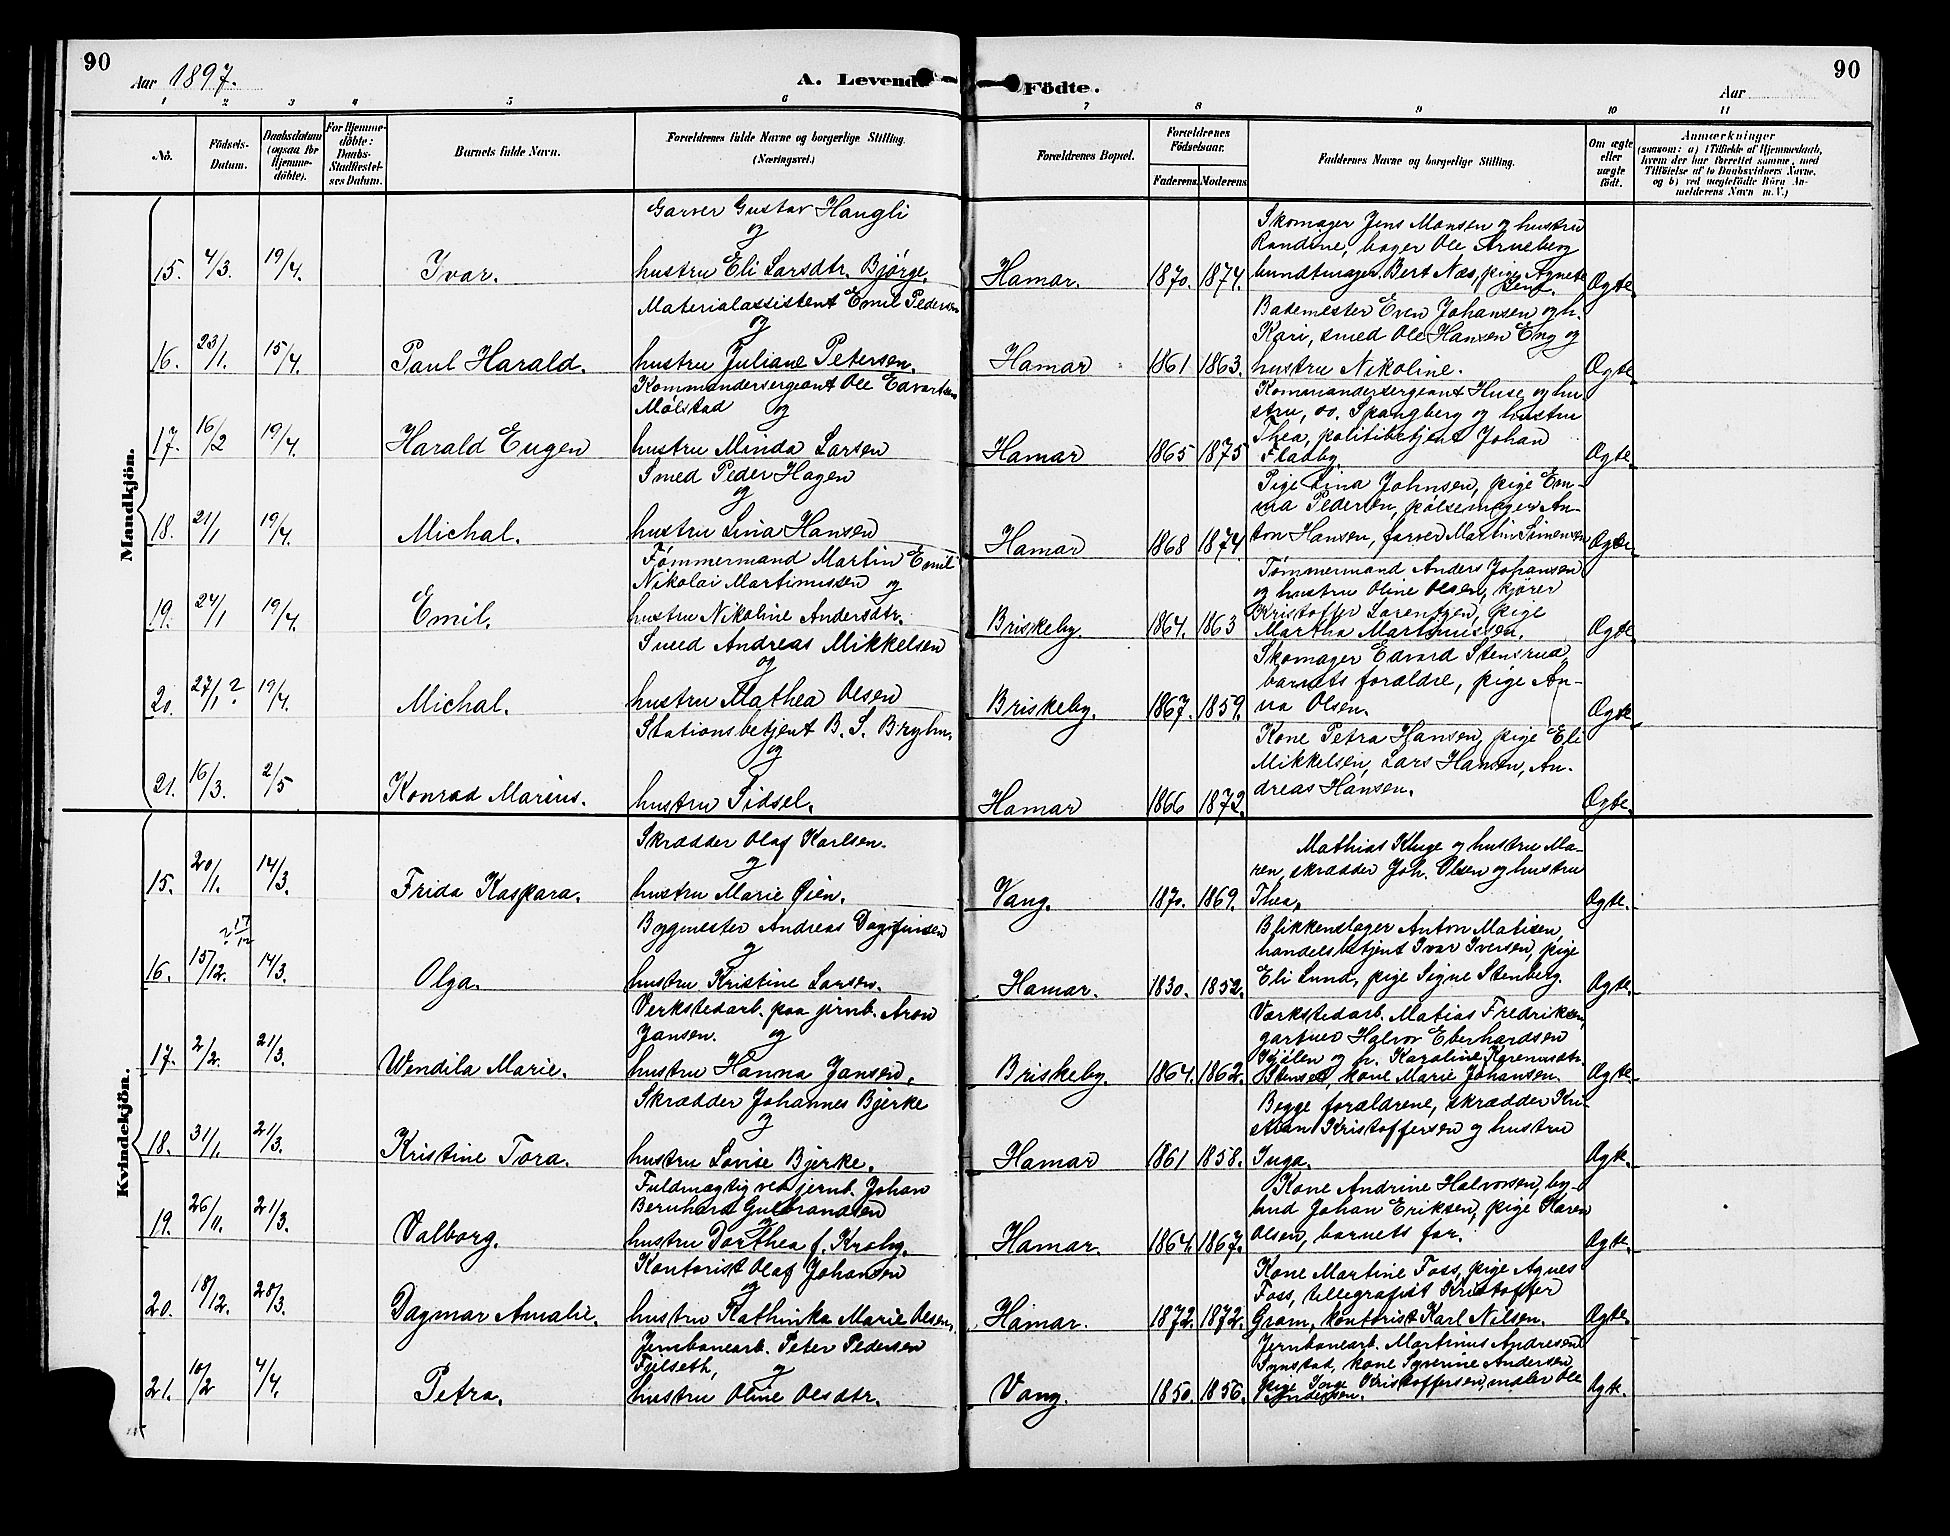 90
Aar 1897.
A. Levende
1 2 3 4 5 6
No.
Födsels-
Datum.
Daabsdatum
(ogsaa for
Hjemme-
döbte).
For Hjemme-
döbte:
Daabs-
Stadfæstel-
ses Datum.
Barnets fulde Navn.
Forældrenes fulde Navne og borgerlige Stilling.
(Næringsvei.)
Mandkjön.
Garver Gustav Haugli
og
15. 4/3. 19/4. Ivar. hustru Eli Larsdtr. Bjørge.
Materialassistent Emil Pedersen
og
16. 23/1. 15/4. Paul Harald. hustru Juliane Petersen.
Kommandersergeant Ole Edvartsen
Mølstad og
17. 16/2 19/4. Harald Eugen hustru Minda Larsen
Smed Peder Hagen
og
18. 21/1 19/4. Michal. hustru Lina Hansen
Tømmermand Martin Emil
Nikolai Martinussen og
19. 24/1 19/4. Emil. hustru Nikoline Andersdtr.
Smed Andreas Mikkelsen
og
20. 27/1? 19/4. Michal. hustru Mathea Olsen
Stationsbetjent B. S. Bryhn.
og
21. 16/3. 2/5 Konrad Marius. hustru Sidsel.
Kvindekjön.
Skrædder Olaf Karlsen.
og
15. 20/1. 14/3. Frida Kaspara. hustru Marie Øien.
? 17/12
Bygmester Andreas Dagfinsen
og
16. 15/12. 14/3. Olga. hustru Kristine Larsen.
Verkstedarb. paa jernb. Aron
Jansen. og
17. 2/2. 21/3. Wendila Marie. hustru Hanna Jansen.
Skrædder Johannes Bjerke
og
18. 31/1. 21/3. Kristine Tora. hustru Lovise Bjerke.
Fuldmægtig ved jernb. Johan
Bernhard Gulbrandsen
og
19. 26/11. 21/3. Valborg. hustru Dorthea f. Kroby.
Kontorist Olaf Johansen
og
20. 18/12. 28/3. Dagmar Amalie. hustru Kathinka Marie Olsen.
Jernbanearb. Peter Pedersen
Fjelseth, og
21. 10/2 4/4. Petra. hustru Oline Olsdtr.
90
Födte.
Aar
7 8 9 10 11
Forældrenes Bopæl.
Forældrenes
Födselsaar.
Faderens. Moderens.
Faddernes Navne og borgerlige Stilling.
Om ægte
eller
uægte
födt.
Anmærkninger
(saasom: a) i Tilfælde af Hjemmedaab,
hvem der har forrettet samme, med
Tilföielse af to Daabsvidners Navne,
og b) ved uægtefödte Börn An-
melderens Navn m. V.)
Skomager Jens Monsen og hustru
Randine, bager Ole Arneberg
Hamar. 1870. 1874. bundtmager Bert Næs, pige Agnete Ægte.
Bademester Even Johansen og h.
Kari, smed Ole Hansen Eng og
Hamar 1861 1863. hustru Nikoline. Ægte
Kommandersergeant Huse og hu-
stru, do. Spangberg og hustru
Thea, politibetjent Johan
Hamar 1865 1875 Fladby. Ægte.
Pige Lina Johnsen, pige Em-
ma Pedersen, pølsemager An-
Hamar 1868 1874 ton Hansen, farver Martin Simensen Ægte.
Tømmermand Anders Johansen
og hustru Oline Olsen, kjører
Kristoffer Lorentzen, pige
Briskeby. 1864. 1863 Martha Martinussen. Ægte
Skomager Edvard Stensrud
barnets forældre, pige An-
Briskeby. 1867. 1859. na Olsen. Ægte
Kone Petra Hansen, pige Eli
Mikkelsen, Lars Hansen, An-
Hamar 1866 1872. dreas Hansen. Ægte.
Mathias Kluge og hustru Ma-
ren, skrædder Joh. Olsen og hustru
Vang. 1870. 1869. Thea, Ægte.
Blikkenslager Anton Matisen,
handelsbetjent Ivar Iversen, pige
Hamar. 1830. 1852. Eli Lund, pige Signe Stenberg. Ægte.
Værkstedarb. Matias Fredriksen,
gartner Halvor Eberhardsen
Kjølen og h. Karoline
Briskeby. 1864. 1862. kone Marie Johansen. Ægte
Begge forældrene, skrædder Kri-
stian Kristoffersen og hustru
Hamar 1861 1858. Inga. Ægte.
Kone Andrine Halvorsen, by-
bud Johan Eriksen, pige Karen
Hamar. 1864. 1867. Olsen, barnets far. Ægte.
Kone Martine Foss, pige Agnes
Foss, tellegrafist Kristoffer
Hamar. 1872. 1872. Gram, kontorist Karl Nilsen. Ægte.
Jernbanearb. Martinus Andresen
Synstad, kone Syverine Andersen,
Vang. 1850. 1856. pige Inge Kristoffersen, maler Ole Ægte.
Andersen.